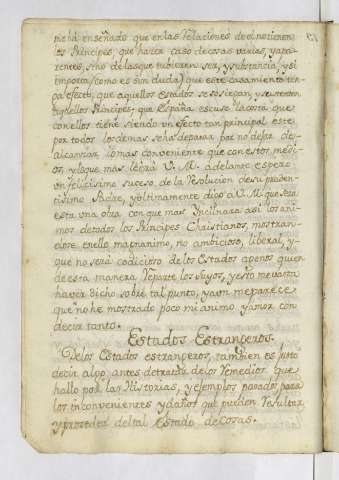 me há enseñado que en las relaciones de el no tienen
los Principes, que hacer caso de cosas varias, y apa-
rentes, sino de las que tubieren ser, y substancia, y si
importa (como es sin duda) que este casamiento ten-
ga efecto, que aquellos Estados se sosiegan, y se
aquellos Principes, que España escuse la costa que
con ellos tiene siendo un efecto tan principal este
por todos los demas se ha de parar por no dejar de
alcanzar lo mas conveniente que con estos medi-
os, y la que mas verá V. M. adelante espero
un felicisimo suceso de la resolucion de su pruden-
tisimo Padre, y ultimamente digo a V. M. que será
esta una obra con que mas Inclinara asi los ani-
mos de todos los Principes Christianos, mostran-
dose en ella magnanimo, no ambicioso, liberal, y
que no será codicioso de los Estados agenos quien
de esta manera reparte los suyos, y esto me basta
haver dicho sobre tal punto, y aun me parece
que no he mostrado poco mi animo y amor con
decir tanto.
Estados Estrangeros.
De los Estados estrangeros, tambien es justo
decir algo antes de tratar de los remedios que
hallo por las Historias, y egemplos pasados para
los inconvenientes y daños que pueden resultar
y proceder del tal Estado de cosas.